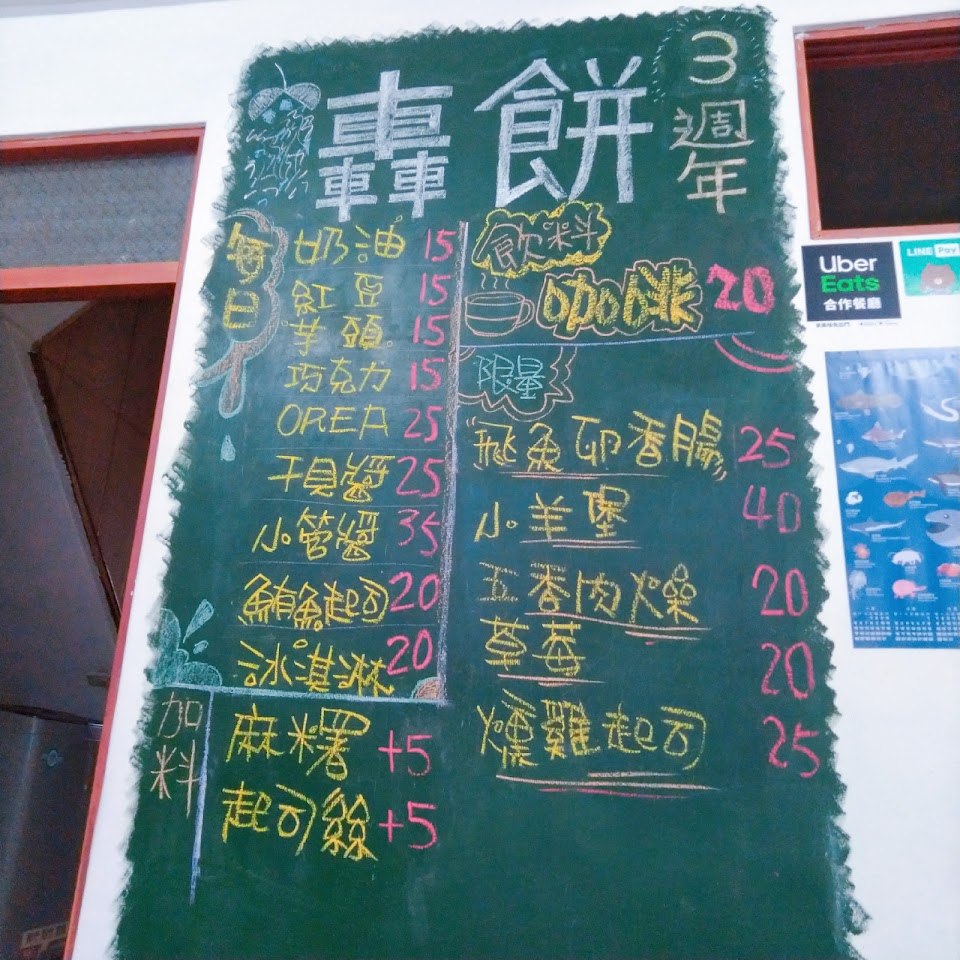 轟餅
3週年
每日
奶油 15
紅豆 15
芋頭 15
巧克力 15
OREA 25
干貝醬 25
小管醬 35
鮪魚起司 20
冰淇淋 20
加料
麻糬 +5
起司絲 +5
飲料
咖啡 20
限量
飛魚卵香腸 25
小羊堡 40
五香肉燥 20
草莓 20
燻雞起司 25
Uber
Eats
合作餐廳
LINE Pay